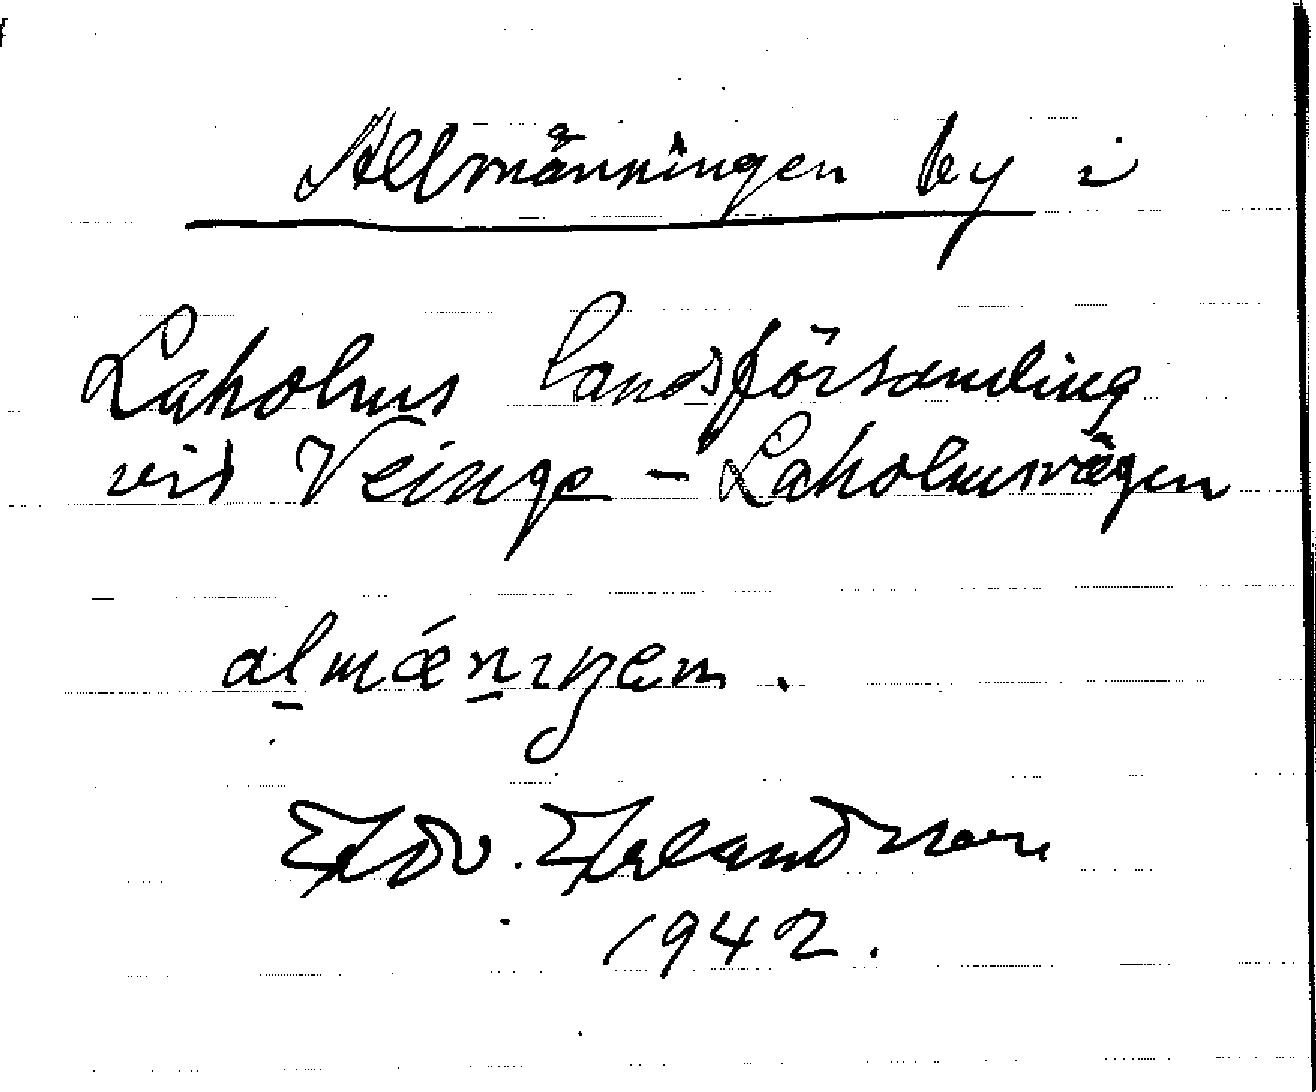 Allmänningen by i
Laholms landsförsamling
vid Veinge - Laholmsvägen
almǽnıŋen.
Edv. Erlandsson
1942.